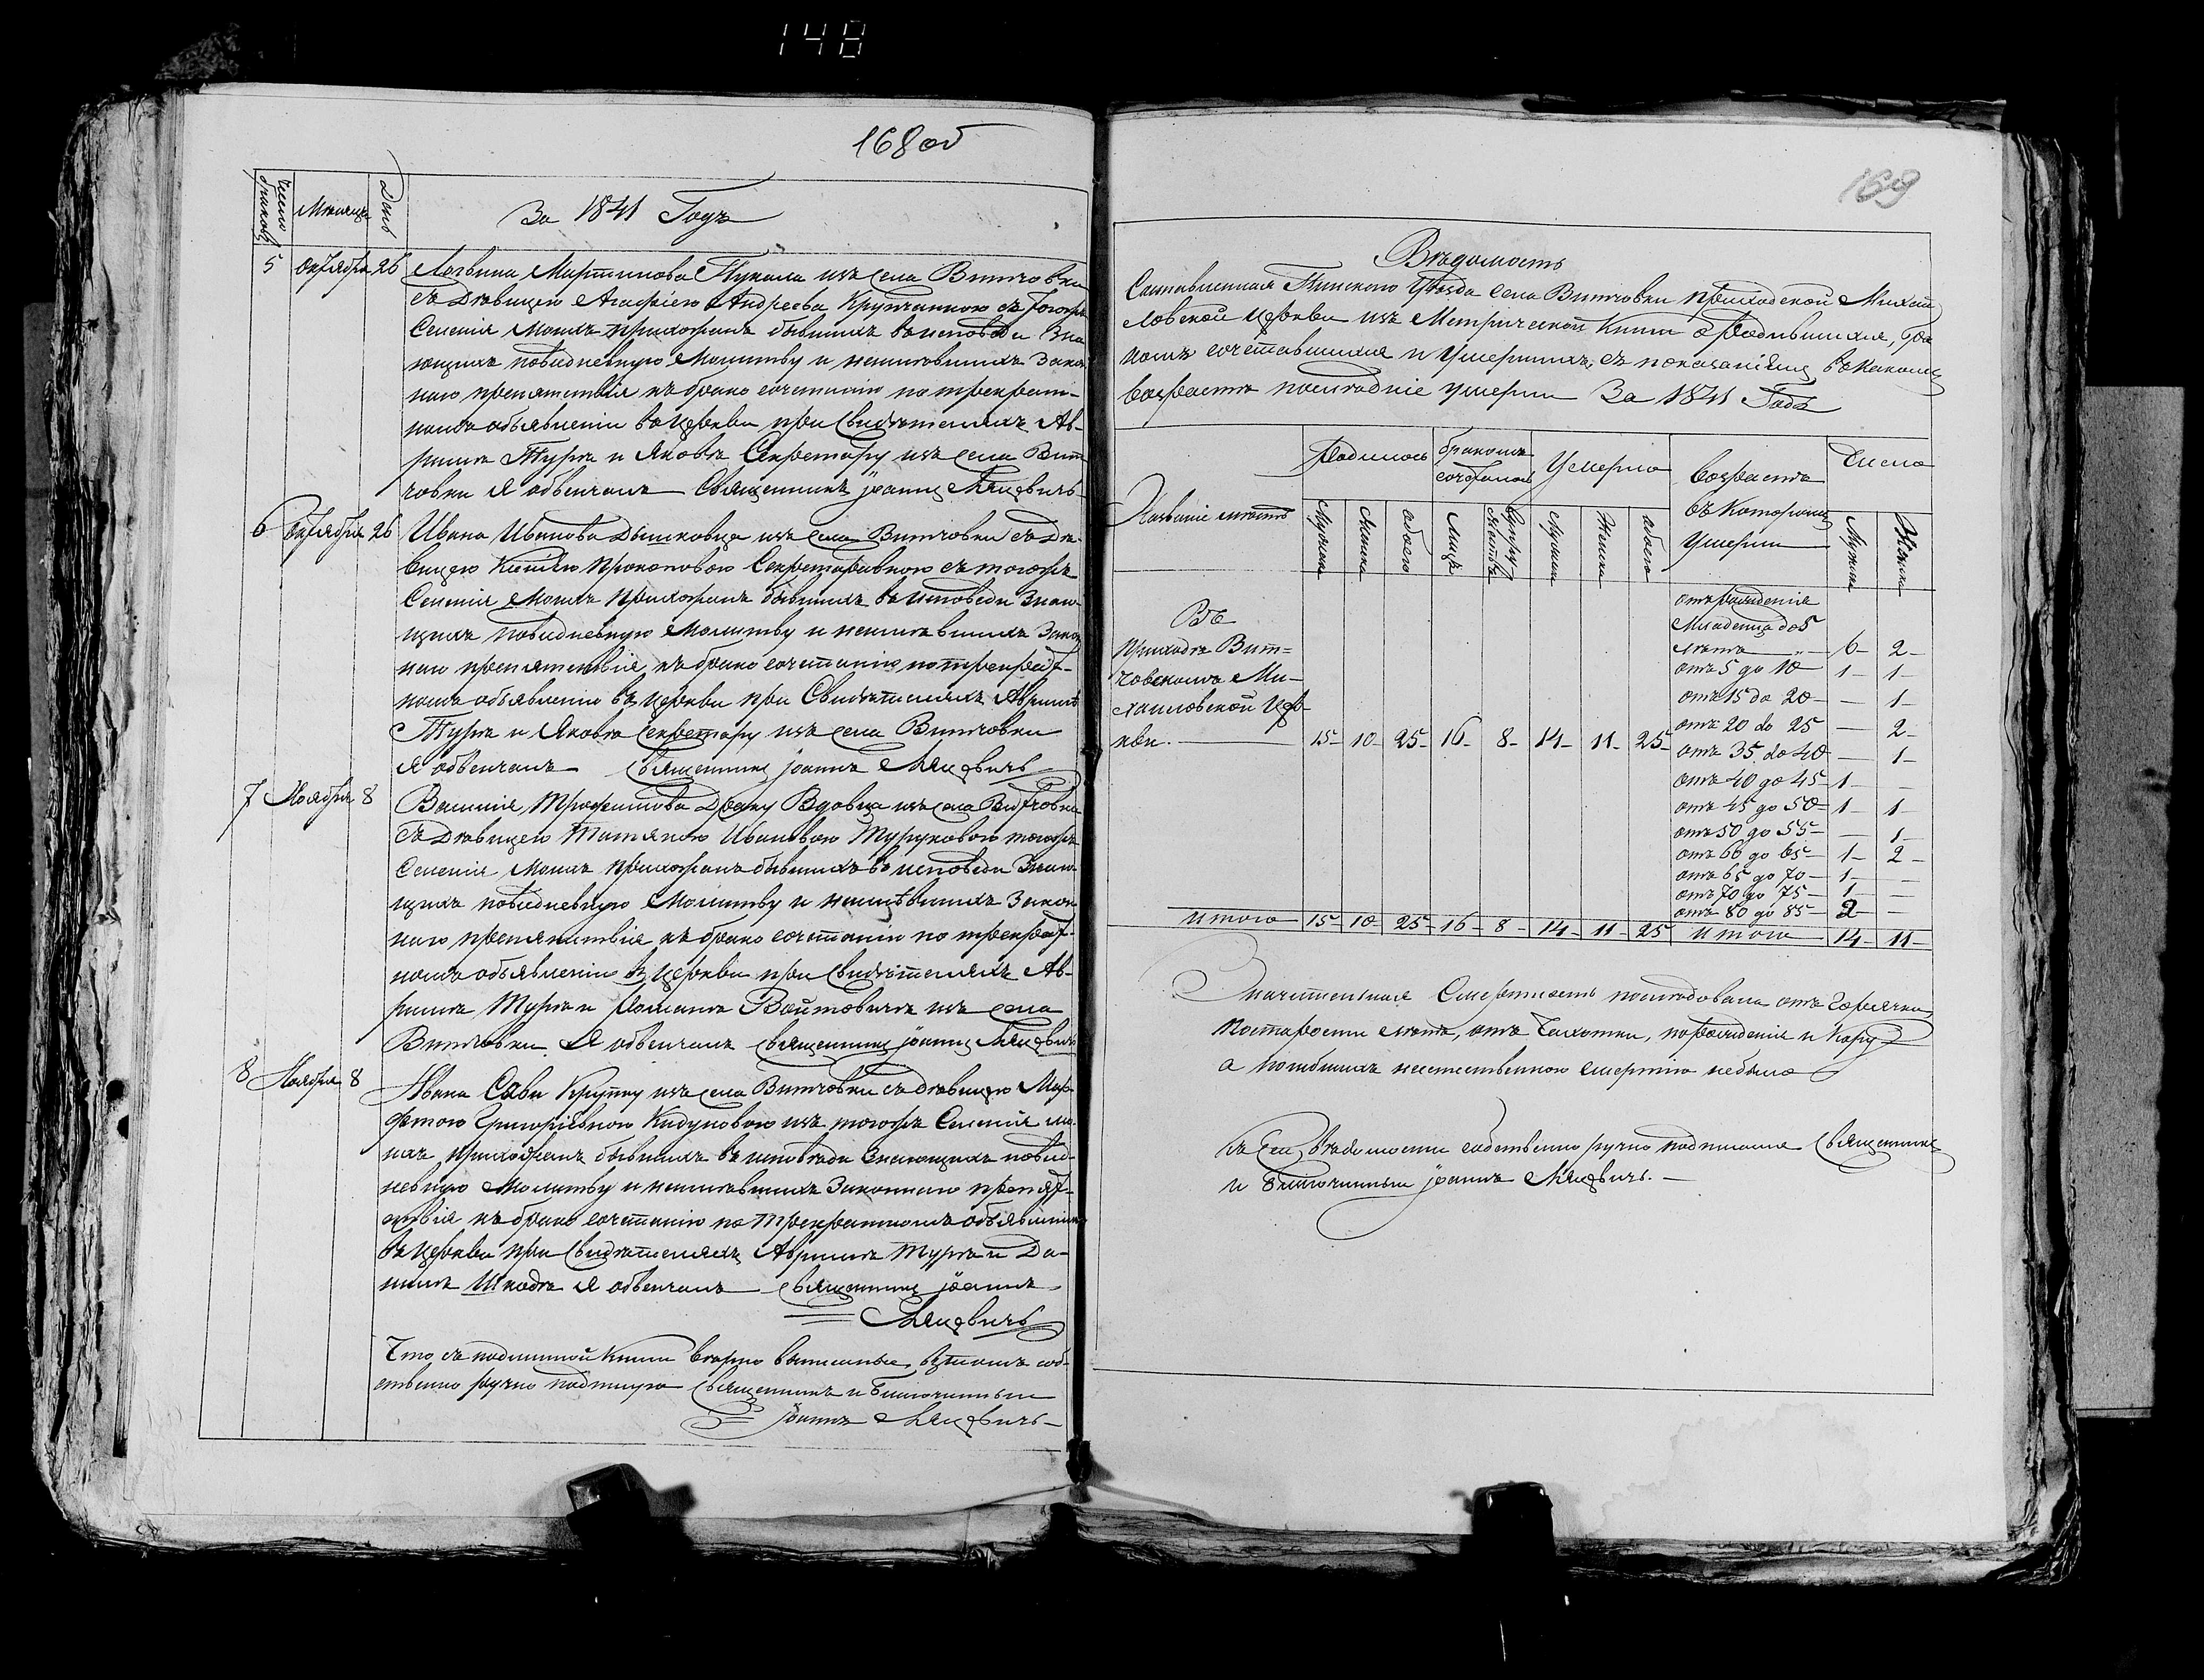 148
168об
Число браковъ Месяцъ День За 1841 Годъ
5 Октября 26 Логвина Мартинова Пукала изъ села Витчовки
съ Девицею Агафіею Андреева Крупчанкою съ тогожъ
Селенія Моихъ прихожанъ бывшихъ въ исповеди Зна
ющихъ повседневную Молитву и неимевшихъ Закон
наго препятствія къ брако сочетанію по трекрат-
номъ объявленіи въ церкви при Свидетеляхъ Ав-
рима Турга и Якова Секретару изъ села Вит
човки я обвенчалъ Священникъ Іоаннъ Мацевичъ
6 Октября 26 Ивана Иванова Дышковца изъ села Витчовки съ Де-
вицею Прокоповою Секретаровною съ тогожъ
Селенія Моихъ Прихожанъ бывшихъ въ исповеди Знаю
щихъ повседневную Молитву и неимевшихъ Закон
наго препятствія къ брако сочетанію по трекрат-
номъ объявленію въ церкви при Свидетеляхъ Аврима
Турга и Якова Секретару изъ села Витчовки
я обвенчалъ Священникъ Іоаннъ Мацевичъ
7 Ноября 8 Василія Трофимова Вдовца изъ села Витчовки
съ Девицею Татяною Ивановою Туруковою тогожъ
Селенія Моихъ Прихожанъ бывшихъ въ исповеди Знаю-
щихъ повседневную Молитву и неимѣвшихъ Закон
наго препятствія къ брако сочетанію по трекрат-
номъ объявленію въ церкви при Свидетеляхъ Ав-
рима Турга и Романа Войтовича изъ села
Витчовки. Я обвенчалъ священникъ Іоаннъ Мацевичъ
8 Ноября 8 Ивана Сави Крупку изъ села Витчовки съ девицею Мар-
фтою Григоріевною Кидуновою изъ тогожъ Селенія мо
ихъ прихожанъ бывшихъ въ исповеди Знающихъ повсед-
невную Молитву и неимевшихъ Законнаго препят-
ствія къ брако сочетанію по Трекратномъ объявленіи
въ Церкви при Свидетеляхъ Аврима Турга и Да-
нила Шкода я обвенчалъ священникъ Іоаннъ
Мацевичъ
Что съ подлинной книги верно выписаны, въ томъ соб-
ственно ручно подпишую Священникъ и Благочинный
Іоаннъ Мацевичъ
169
Вѣдомость
Составленная Пинского Уѣзда села Витчовки приходской Михаи
ловской Церкви изъ Метрической Книги о Родившихся, бра
комъ сочетавшихся и Умершихъ, съ показаніемъ въ какомъ
возрасте последніе умерли За 1841 Годъ
Названіе местъ Родилось бракомъ сочеталось Умерло возраста въ Которомъ Умерли Число
Мужеска Женска обоего Лицъ Супружествъ Мужска Женска обоего Мужска Женска
отъ рожденія
Младенца до 5
летъ 6 2
отъ 5 до 10 1 1
отъ 15 до 20 — 1
отъ 20 до 25 — 2
отъ 35 до 40 — 1
отъ 40 до 45 1 —
отъ 45 до 50 1 1
отъ 50 до 55 — 1
отъ 60 до 65 1 2
отъ 65 до 70 1 —
отъ 70 до 75 1 —
отъ 80 до 85 2 —
Въ
приходе Вит=
човскомъ Ми-
хаиловской Цер-
кви. 15 10 25 16 8 14 11 25
Итого 15 10 25 16 8 14 11 25 Итого 14 11
Значительная Смертность последовала отъ Горячки,
по старости летъ, отъ Чахотки, по рожденіи и Кору
а погибшихъ неестественною смертію небыло
Къ сей ведомости собственно ручно подписался Священникъ
и Благочинный Іоаннъ Мацевичъ.